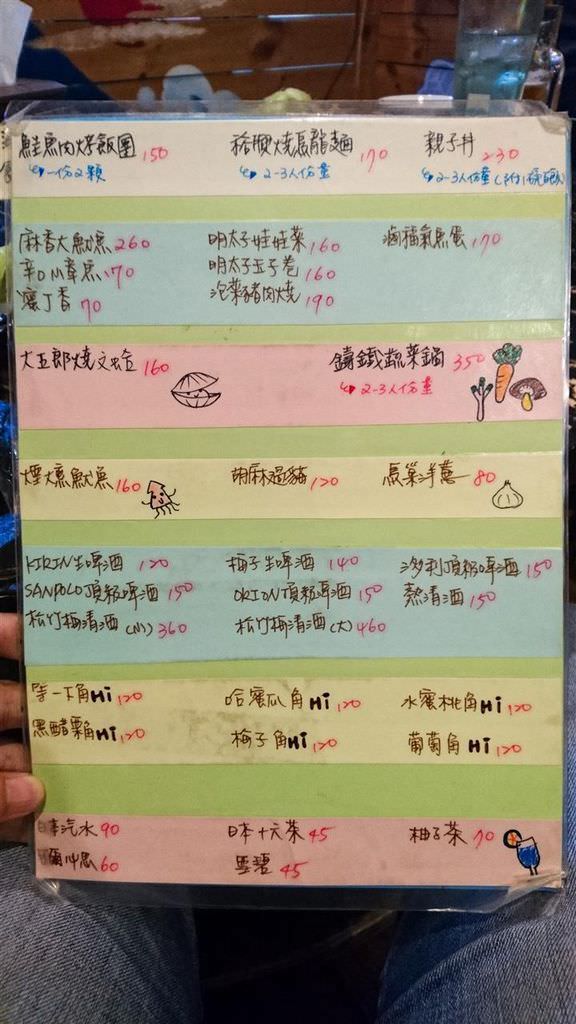 鮭魚肉烤飯團 150 稻賀燒烏龍麵 170 親子丼 230
一份2顆 2-3人份量 2-3人份量
麻香大魷魚 260 明太子娃娃菜 160 滷福氣魚蛋 170
辛口M章魚 170 明太子玉子卷 160
蜜丁香 70 泡菜豬肉燒 190
大五郎燒文蛤 160 鑄鐵蔬菜鍋 350
2-3人份量
煙燻魷魚 160 胡麻過貓 120 馬巢洋蔥 80
KIRIN生啤酒 120 梅子生啤酒 140 沙多利頂級啤酒 150
SANPOLO頂級啤酒 150 ORION頂級啤酒 150 熱清酒 150
松竹梅清酒(小) 360 松竹梅清酒(大) 460
等一下角Hi 120 哈蜜瓜角Hi 120 水蜜桃角Hi 120
黑醋栗角Hi 120 梅子角Hi 120 葡萄角Hi 120
日本汽水 90 日本十六茶 45 柚子茶 70
彌思 60 雪碧 45